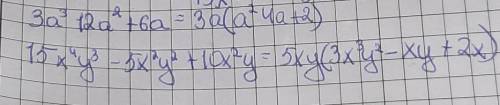 3a³ 12a² + 6a = 3a(a² 4a + 2)
15x⁴y³ - 5x²y² + 10x²y = 5xy(3x³y² - xy + 2x)